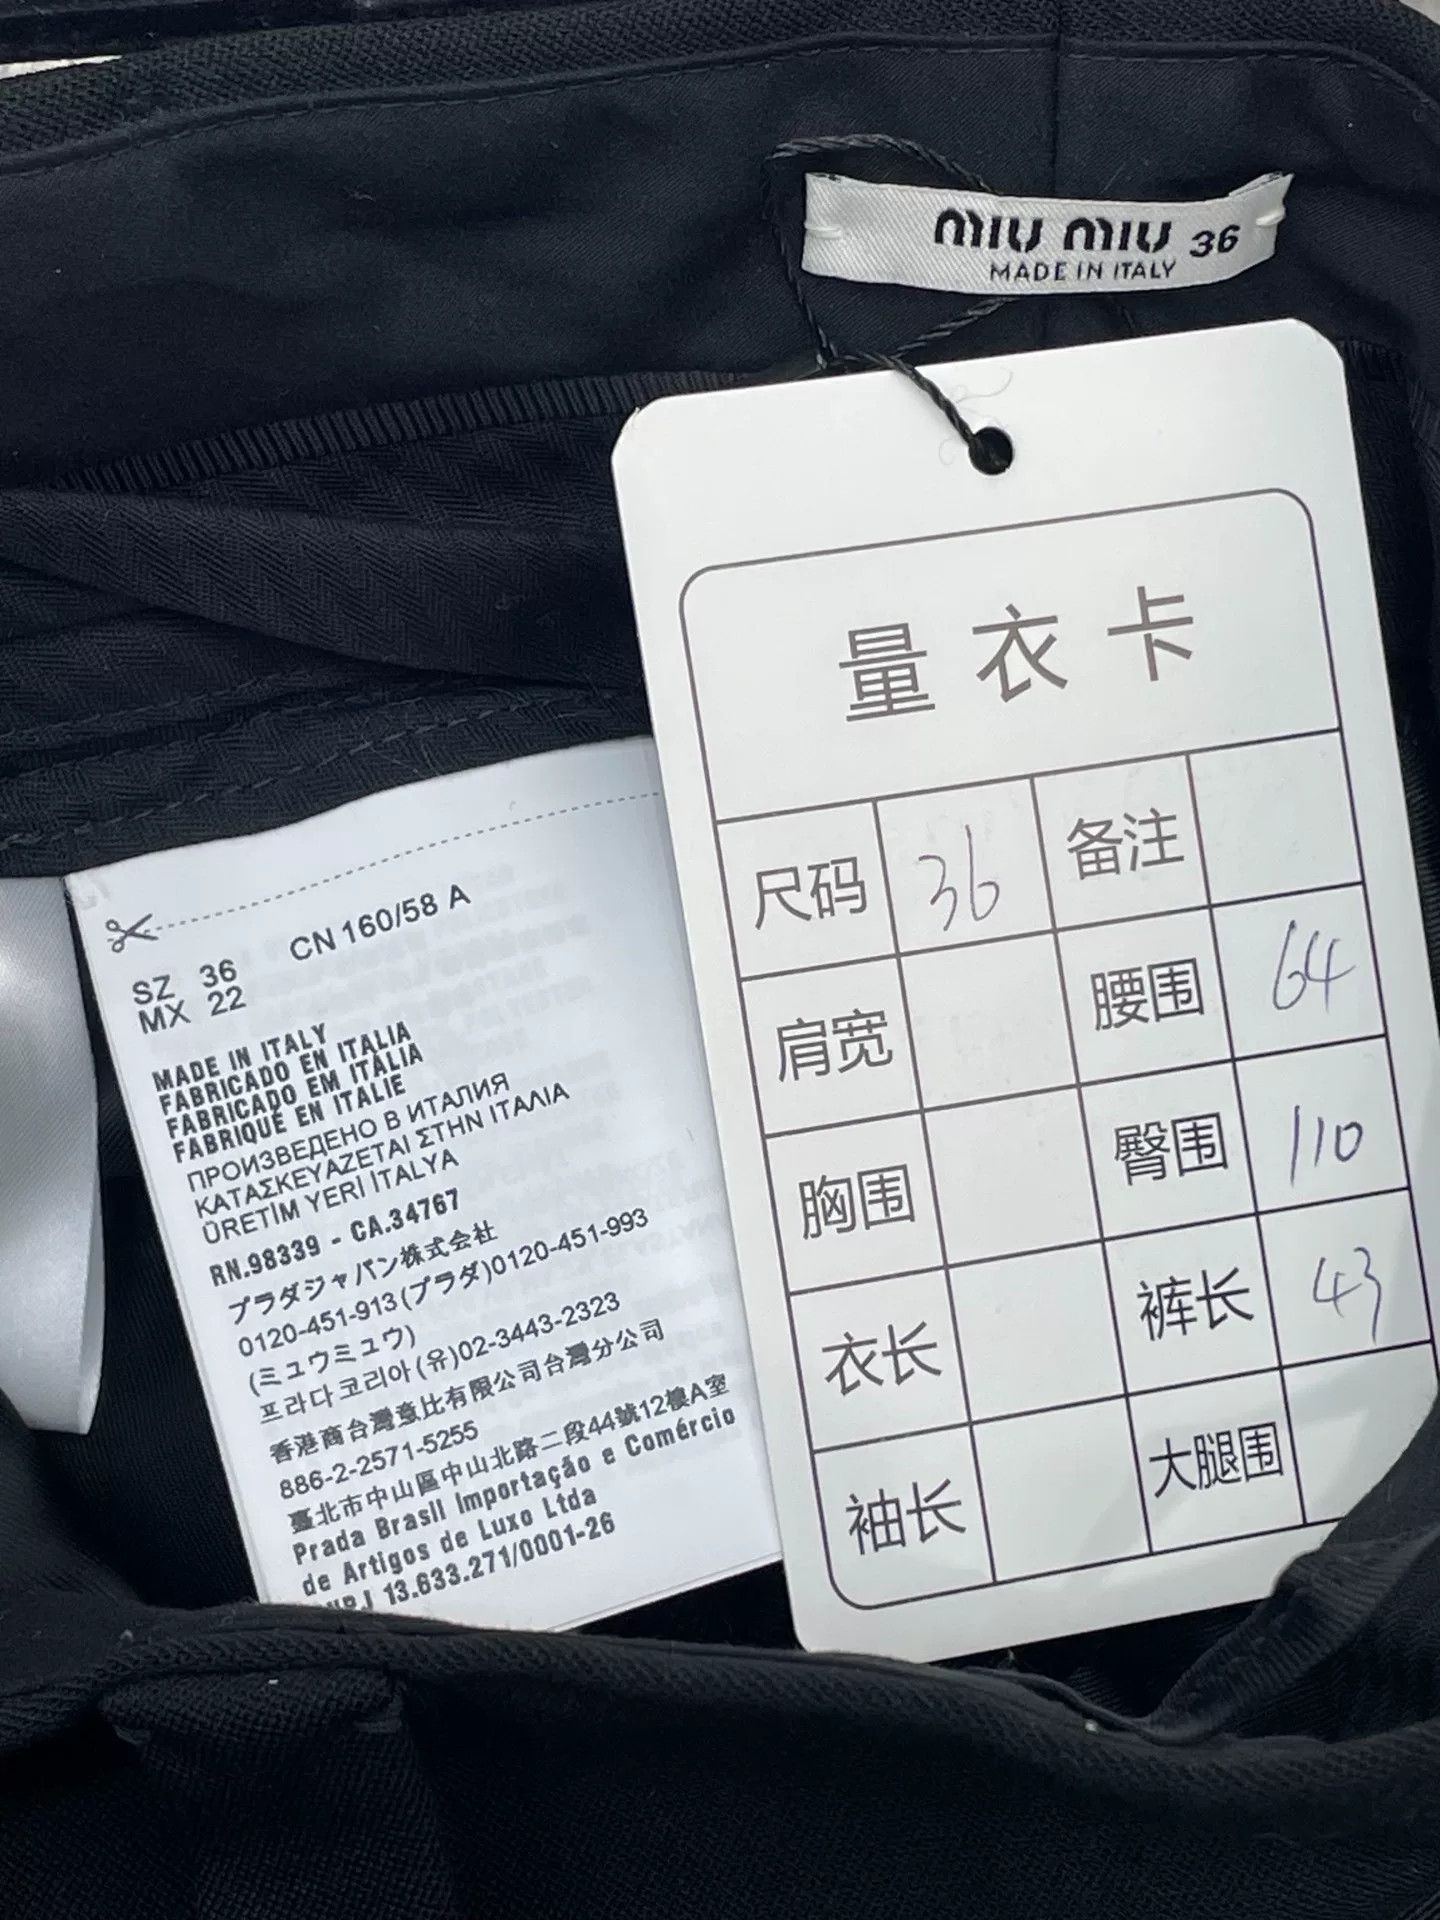 MIU MIU 36
MADE IN ITALY
量衣卡
尺码 36 备注
肩宽 腰围 64
胸围 臀围 110
衣长 裤长 43
袖长 大腿围
CN 160/58 A
SZ 36
MX 22
MADE IN ITALY
FABRICADO EN ITALIA
FABRICADO EM ITÁLIA
FABRIQUÉ EN ITALIE
ПРОИЗВЕДЕНО В ИТАЛИЯ
ΚΑΤΑΣΚΕΥΑΖΕΤΑΙ ΣΤΗΝ ΙΤΑΛΙΑ
ÜRETİM YERİ İTALYA
RN.98339 - CA.34767
プラダジャパン株式会社
0120-451-913(プラダ)0120-451-993
(ミュウミュウ)
프라다코리아(유)02-3443-2323
香港商台灣意比有限公司台灣分公司
886-2-2571-5255
臺北市中山區中山北路二段44號12樓A室
Prada Brasil Importação e Comércio
de Artigos de Luxo Ltda
13.633.271/0001-26